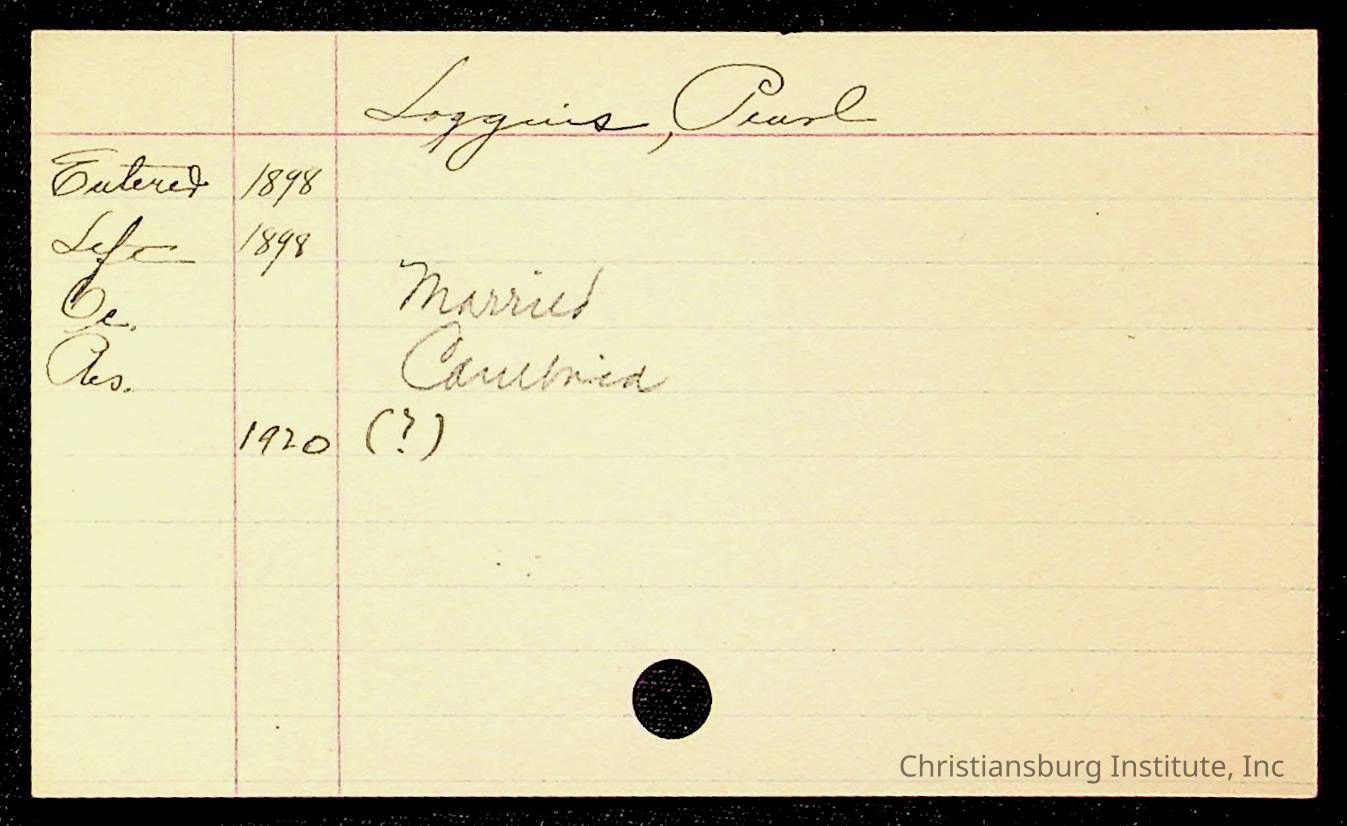 Loggins, Pearl
Entered 1898
Left 1898
Oc. Married
Res.
1920 (?)
Christiansburg Institute, Inc